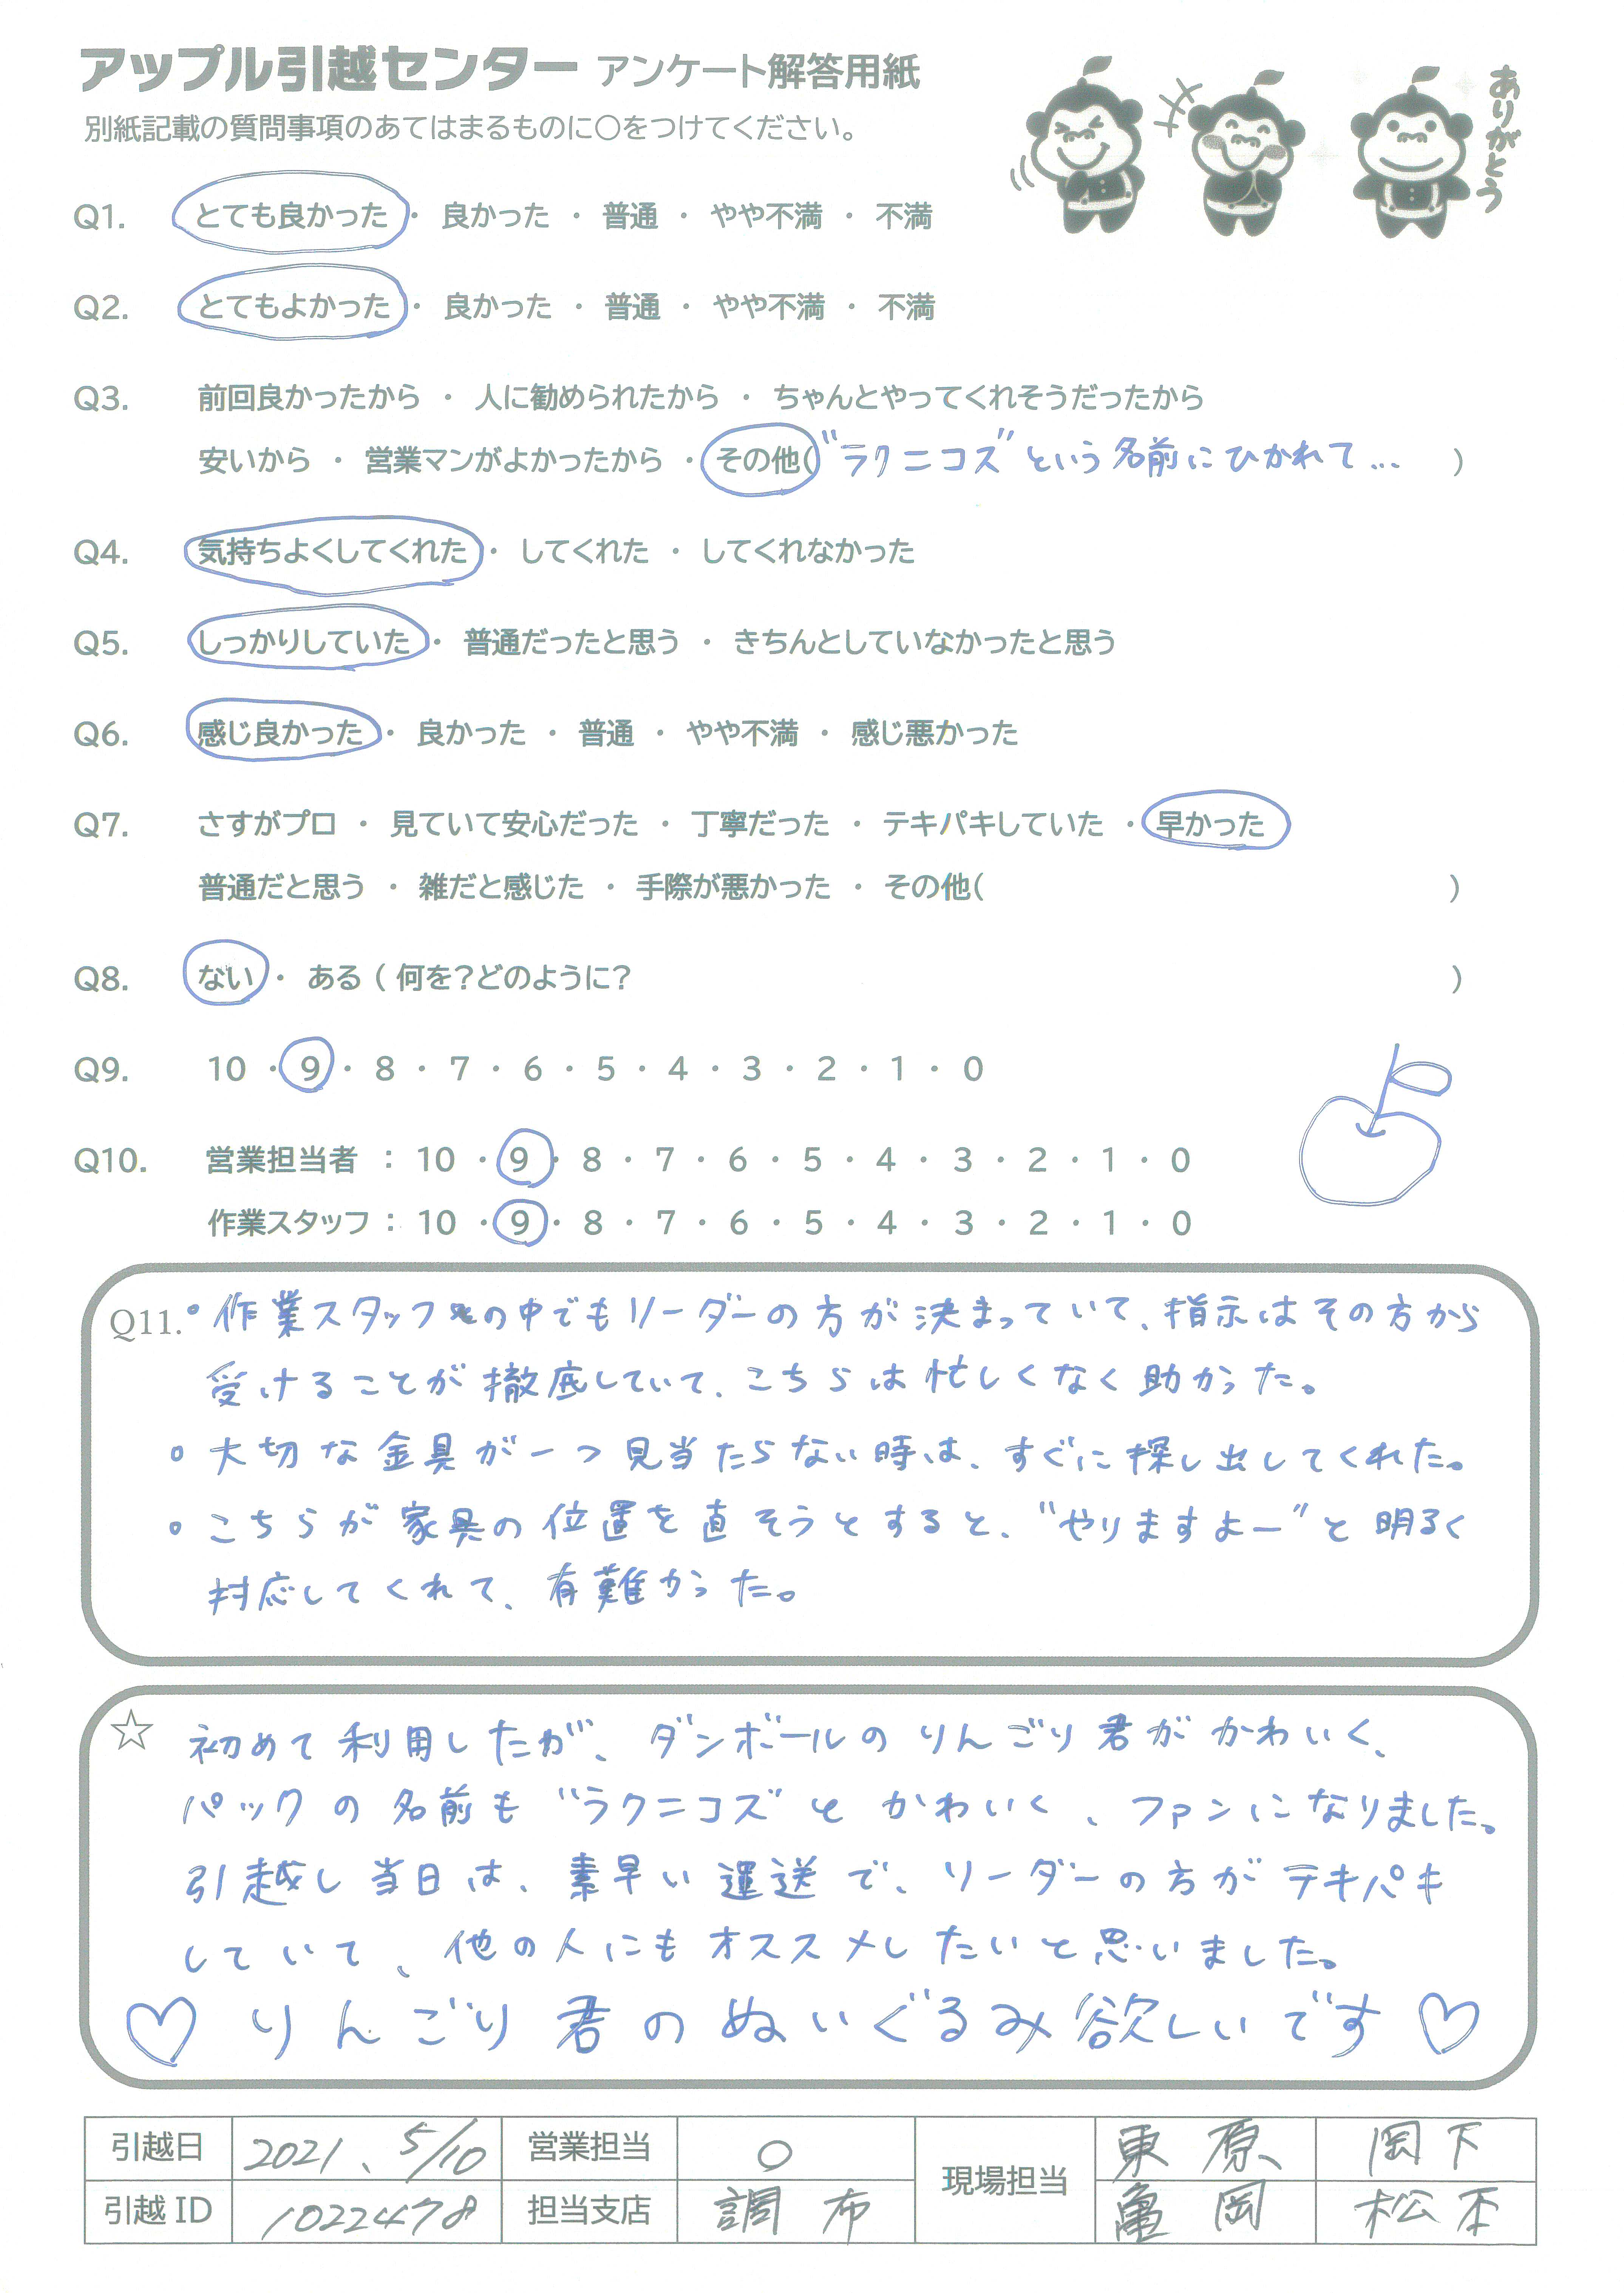 アップル引越センター アンケート解答用紙
別紙記載の質問事項のあてはまるものに○をつけてください。
ありがとう
Q1. とても良かった ・ 良かった ・ 普通 ・ やや不満 ・ 不満
Q2. とてもよかった ・ 良かった ・ 普通 ・ やや不満 ・ 不満
Q3. 前回良かったから ・ 人に勧められたから ・ ちゃんとやってくれそうだったから
安いから ・ 営業マンがよかったから ・ その他( "ラクニコズ"という名前にひかれて… )
Q4. 気持ちよくしてくれた ・ してくれた ・ してくれなかった
Q5. しっかりしていた ・ 普通だったと思う ・ きちんとしていなかったと思う
Q6. 感じ良かった ・ 良かった ・ 普通 ・ やや不満 ・ 感じ悪かった
Q7. さすがプロ ・ 見ていて安心だった ・ 丁寧だった ・ テキパキしていた ・ 早かった
普通だと思う ・ 雑だと感じた ・ 手際が悪かった ・ その他( )
Q8. ない ・ ある ( 何を?どのように? )
Q9. 10 ・ 9 ・ 8 ・ 7 ・ 6 ・ 5 ・ 4 ・ 3 ・ 2 ・ 1 ・ 0
Q10. 営業担当者 : 10 ・ 9 ・ 8 ・ 7 ・ 6 ・ 5 ・ 4 ・ 3 ・ 2 ・ 1 ・ 0
作業スタッフ : 10 ・ 9 ・ 8 ・ 7 ・ 6 ・ 5 ・ 4 ・ 3 ・ 2 ・ 1 ・ 0
Q11. ○作業スタッフの中でもリーダーの方が決まっていて、指示はその方から
受けることが徹底していて、こちらは忙しくなく助かった。
○大切な金具が一つ見当たらない時は、すぐに探し出してくれた。
○こちらが家具の位置を直そうとすると、"やりますよー"と明るく
対応してくれて、有難かった。
☆ 初めて利用したが、ダンボールのりんごり君がかわいく、
パックの名前も"ラクニコズ"とかわいく、ファンになりました。
引越し当日は、素早い運送で、リーダーの方がテキパキ
していて、他の人にもオススメしたいと思いました。
♡ りんごり君のぬいぐるみ欲しいです ♡
引越日 2021、5/10 営業担当 ○ 現場担当 東原 岡下
引越 ID 10222478 担当支店 調布 亀岡 松本